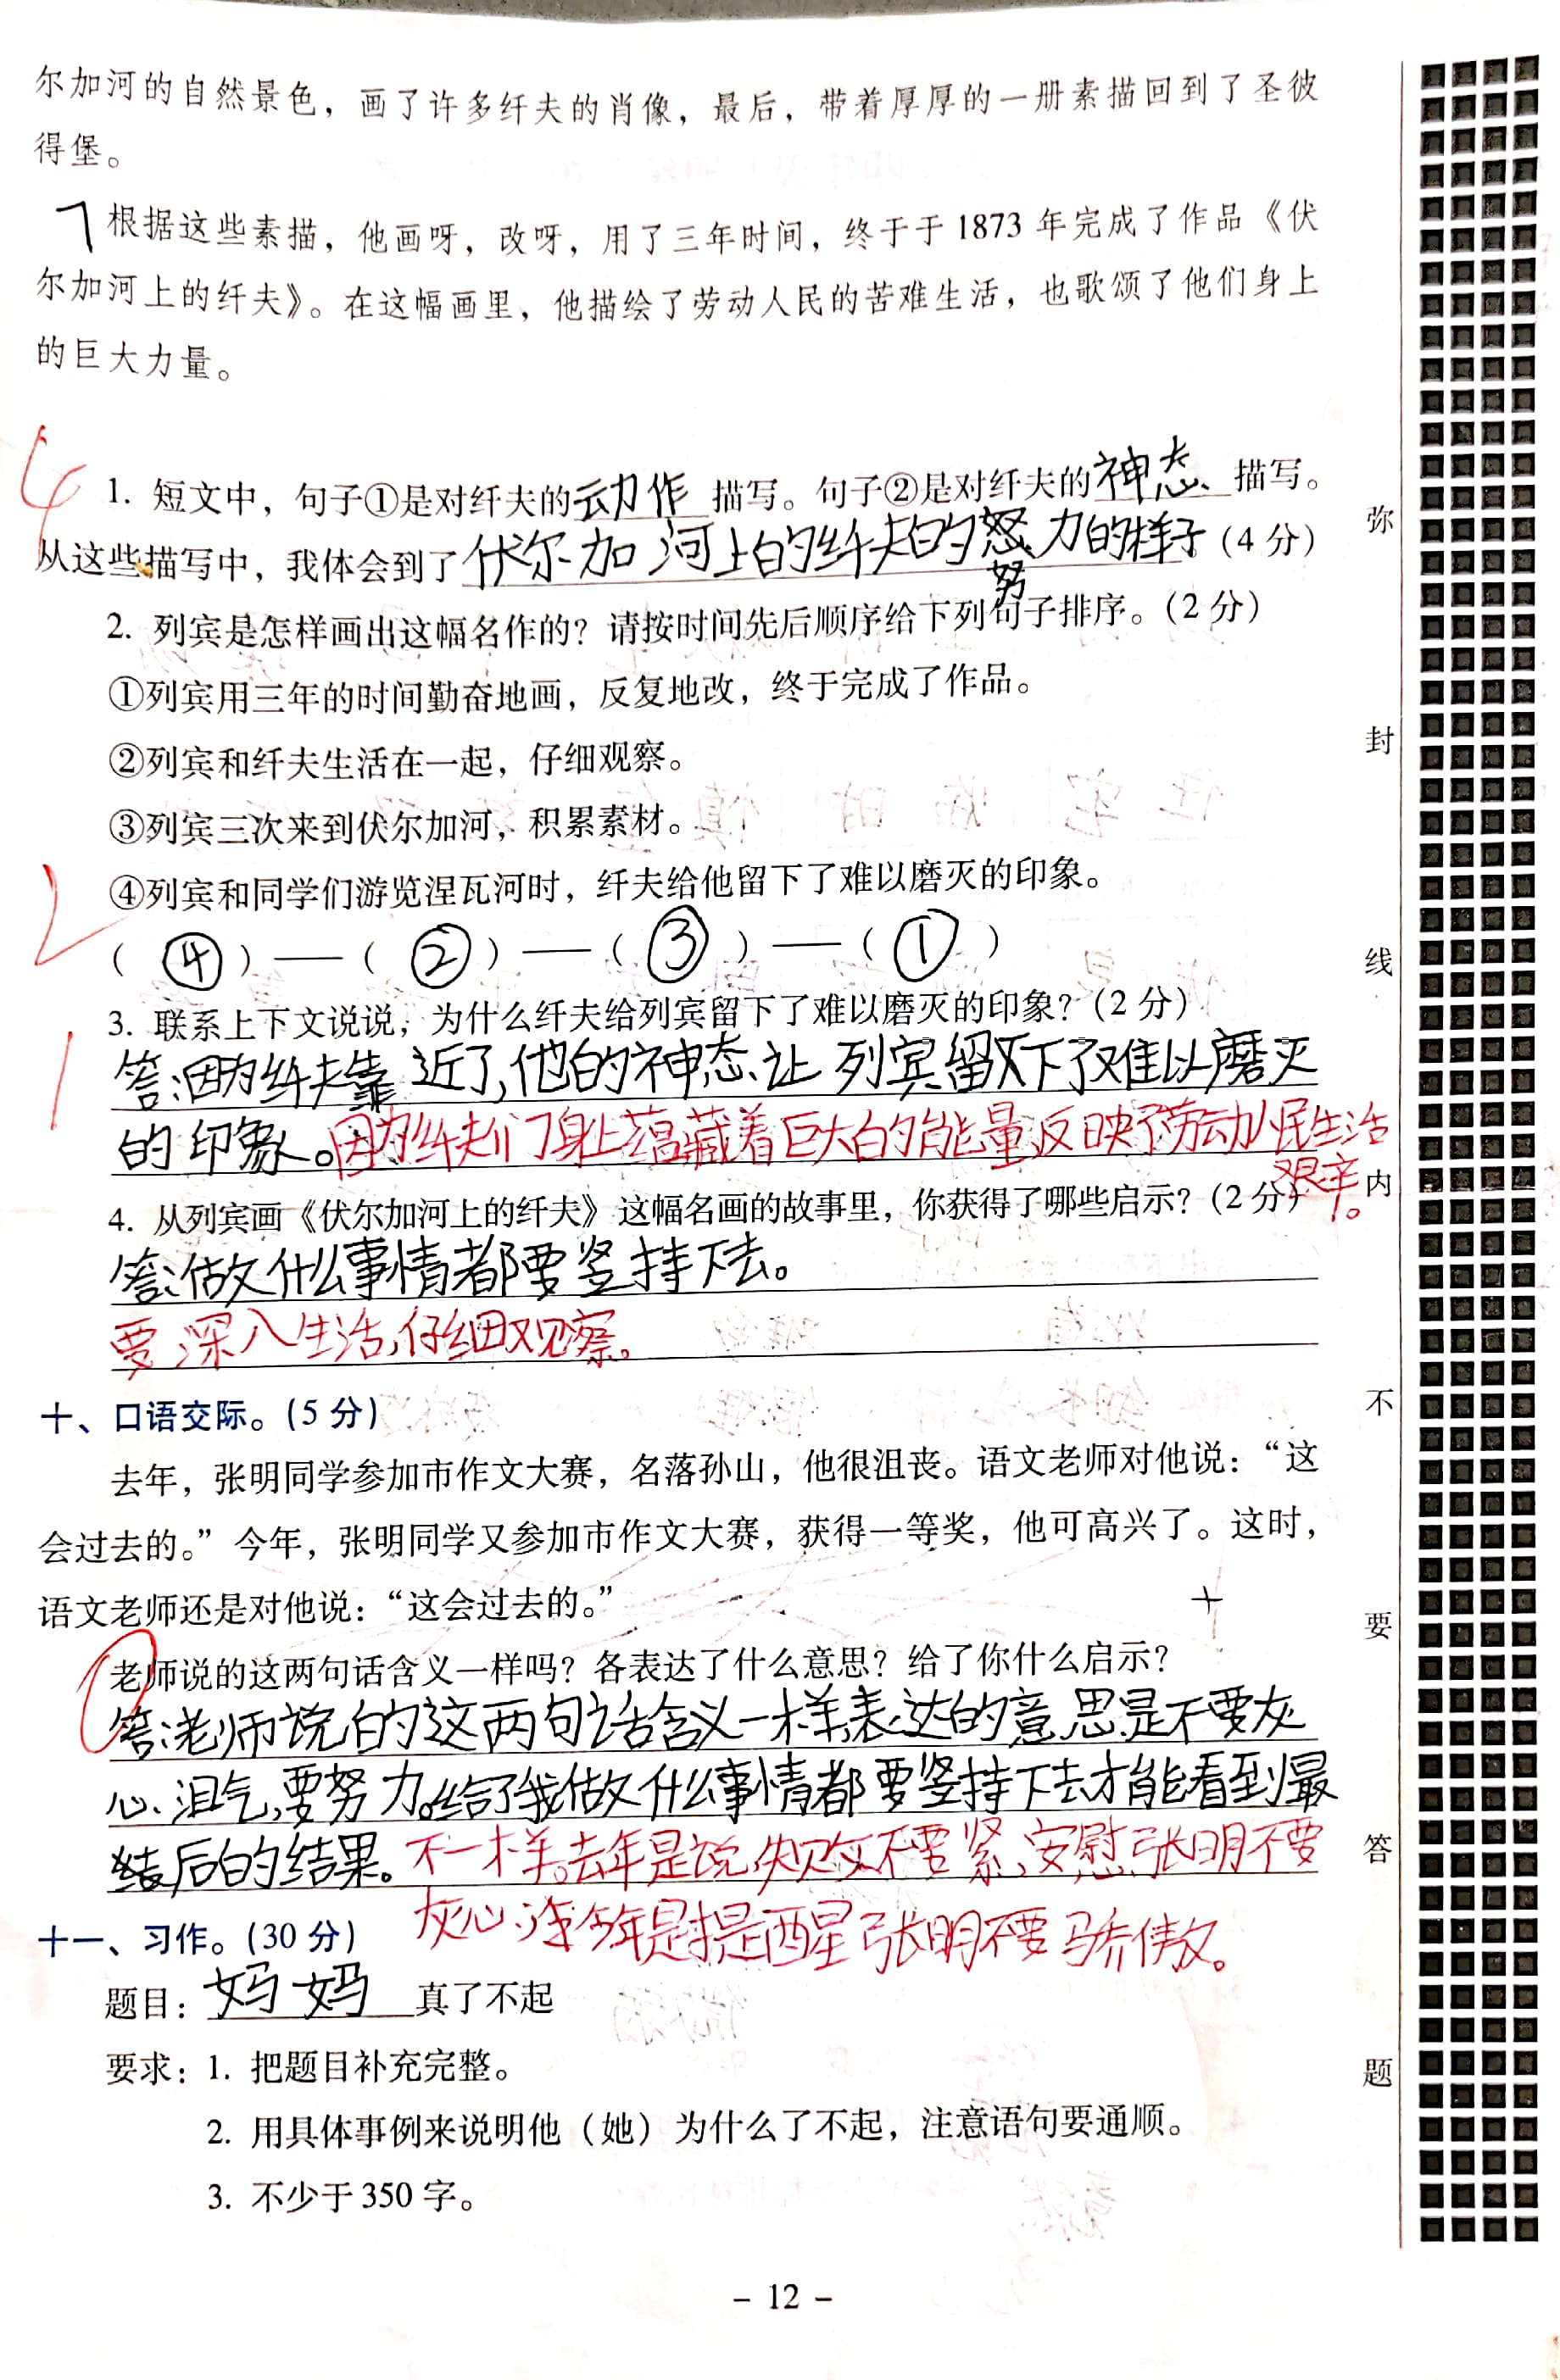 尔加河的自然景色，画了许多纤夫的肖像，最后，带着厚厚的一册素描回到了圣彼
得堡。
7根据这些素描，他画呀，改呀，用了三年时间，终于于1873年完成了作品《伏
尔加河上的纤夫》。在这幅画里，他描绘了劳动人民的苦难生活，也歌颂了他们身上
的巨大力量。
4
1. 短文中，句子①是对纤夫的动作描写。句子②是对纤夫的神态描写。
从这些描写中，我体会到了伏尔加河上的纤夫的怒力的样子（4分）
努
2. 列宾是怎样画出这幅名作的？请按时间先后顺序给下列句子排序。（2分）
①列宾用三年的时间勤奋地画，反复地改，终于完成了作品。
②列宾和纤夫生活在一起，仔细观察。
③列宾三次来到伏尔加河，积累素材。
④列宾和同学们游览涅瓦河时，纤夫给他留下了难以磨灭的印象。
2
（④）——（②）——（③）——（①）
3. 联系上下文说说，为什么纤夫给列宾留下了难以磨灭的印象？（2分）
1
答：因为纤夫靠近了，他的神态、让列宾留下了难以磨灭
的印象。因为纤夫们身上蕴藏着巨大的能量，反映了劳动人民生活
艰辛。
4. 从列宾画《伏尔加河上的纤夫》这幅名画的故事里，你获得了哪些启示？（2分）
答：做什么事情都要坚持下去。
要深入生活，仔细观察。
十、口语交际。（5分）
去年，张明同学参加市作文大赛，名落孙山，他很沮丧。语文老师对他说：“这
会过去的。”今年，张明同学又参加市作文大赛，获得一等奖，他可高兴了。这时，
语文老师还是对他说：“这会过去的。”
老师说的这两句话含义一样吗？各表达了什么意思？给了你什么启示？
0
答：老师说的这两句话含义一样，表达的意思是不要灰
心、泪气，要努力。给了我做什么事情都要坚持下去才能看到最
后的结果。不一样。去年是说失败不要紧，安慰张明不要
灰心，今年是提醒张明不要骄傲。
十一、习作。（30分）
题目：妈妈真了不起
要求：1. 把题目补充完整。
2. 用具体事例来说明他（她）为什么了不起，注意语句要通顺。
3. 不少于350字。
- 12 -
弥
封
线
内
不
要
答
题